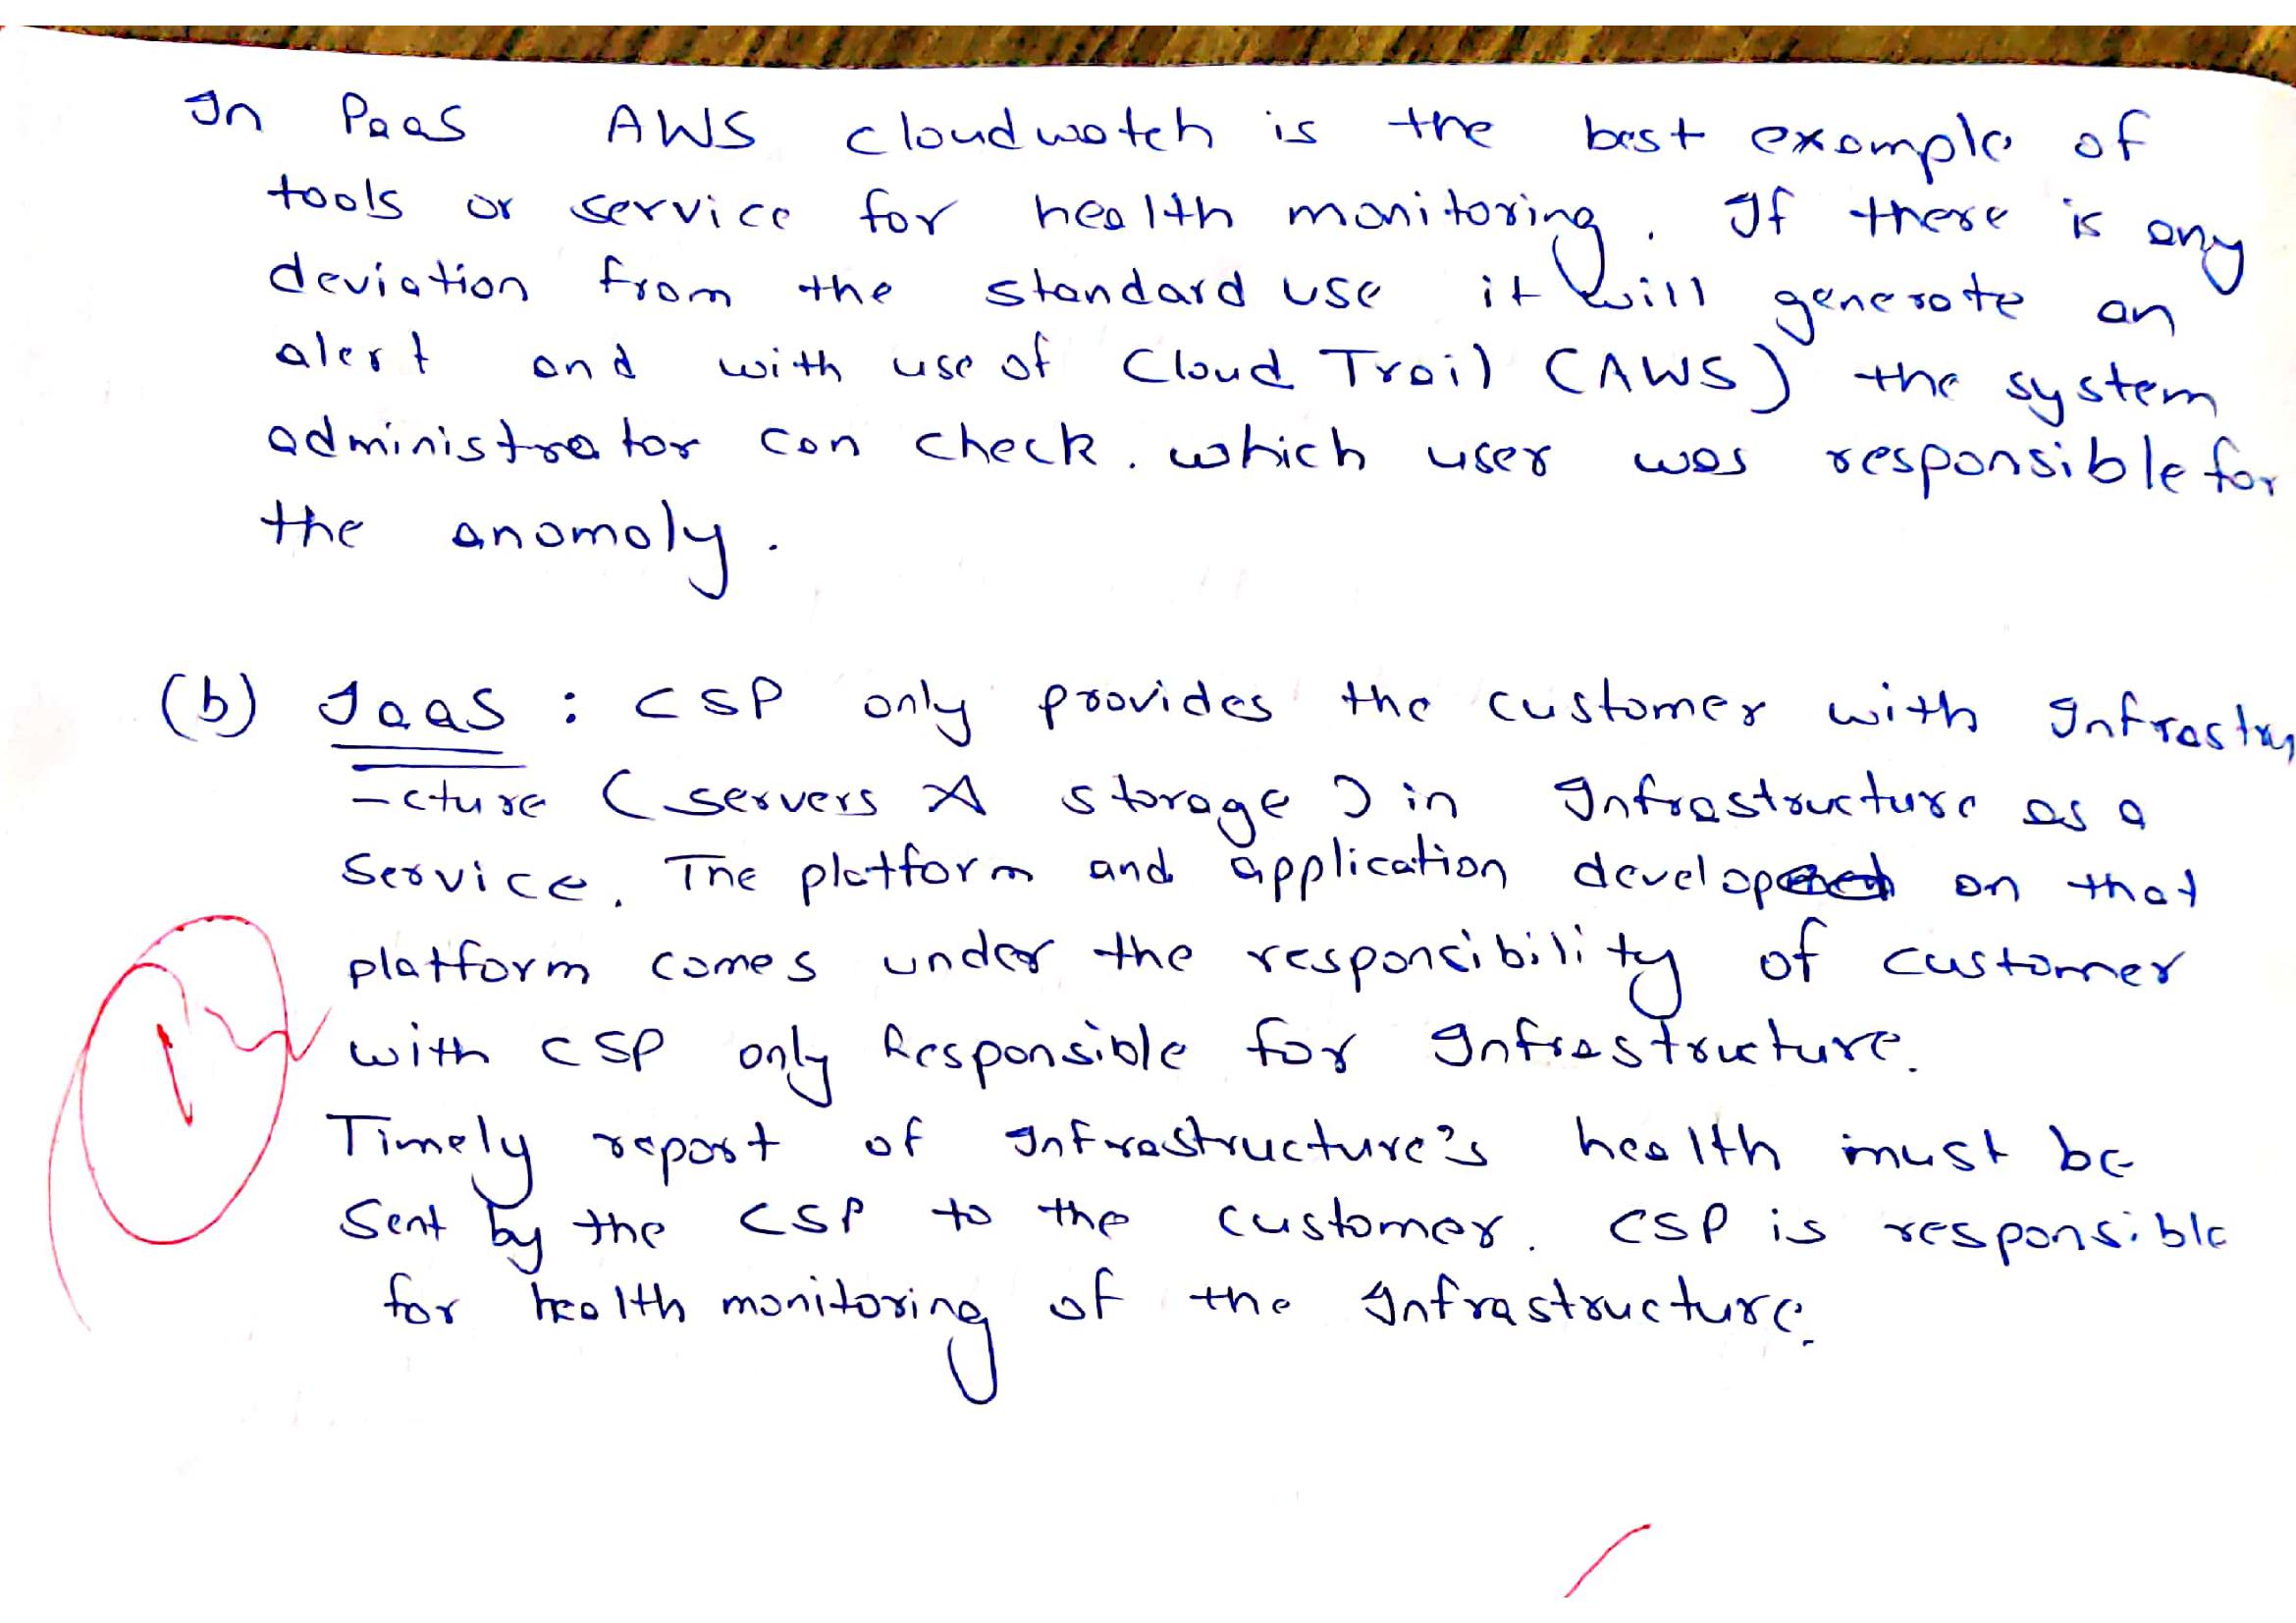 In PaaS AWS cloudwatch is the best example of
tools or service for health monitoring. If there is any
deviation from the standard use it will generate an
alert and with use of Cloud Trail (AWS) the system
administrator can check. which user was responsible for
the anomoly.
(b) IaaS : CSP only provides the customer with Infrastru
-cture (servers & storage) in Infrastructure as a
Service. The platform and application develop on that
platform comes under the responsibility of customer
with CSP only Responsible for Infrastructure.
Timely report of Infrastructure's health must be
Sent by the CSP to the customer. CSP is responsible
for health monitoring of the Infrastructure.